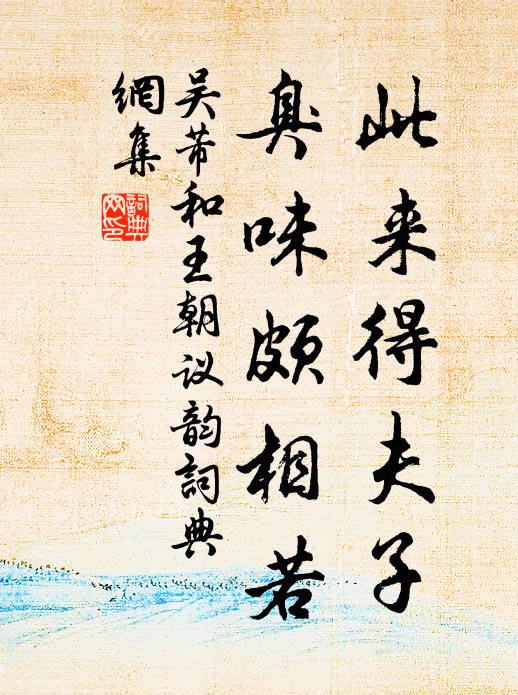 此来得夫子
臭味颇相若
吴芾和王朝议韵詞典
網集
詞典
网印